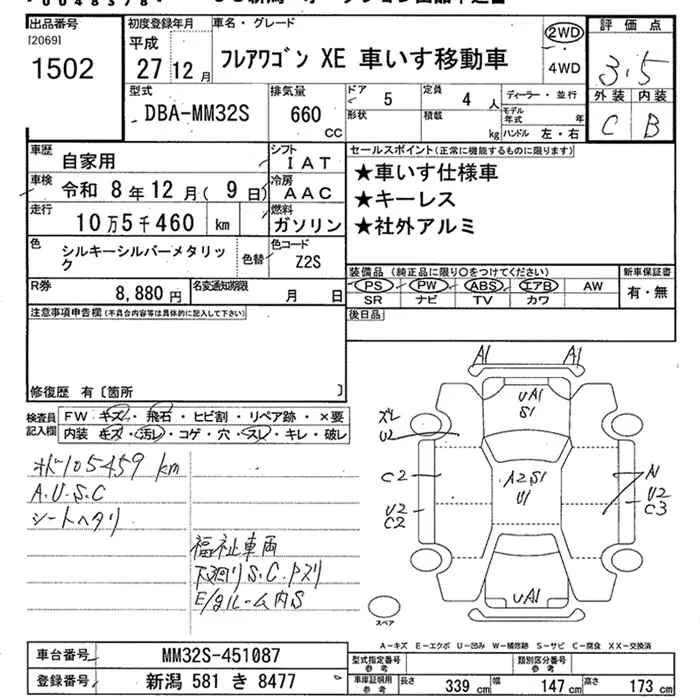 出品番号
[2069]
1502
初度登録年月
平成
27 12 月
車名・グレード
フレアワゴン XE 車いす移動車
2WD
4WD
評価点
3.5
外装 内装
C B
型式
DBA-MM32S
排気量
660
CC
ドア 5
形状
定員 4 人
積載 kg
ディーラー・並行
モデル年式 年
ハンドル 左・右
車歴 自家用
シフト IAT
車検 令和 8 年 12 月( 9 日)
冷房 AAC
走行 10万5千460 km
燃料 ガソリン
色 シルキーシルバーメタリック
色替
色コード Z2S
R券 8,880 円
名変通知期限 月 日
セールスポイント(正常に機能するものに限ります)
★車いす仕様車
★キーレス
★社外アルミ
装備品(純正品に限り○をつけてください)
PS PW ABS エアB AW
SR ナビ TV カワ
新車保証書
有・無
後日品
注意事項申告欄(不具合内容等は具体的に記入して下さい)
修復歴 有〔箇所 〕
検査員記入欄
FW キズ・飛石・ヒビ割・リペア跡・×要
内装 キズ・汚レ・コゲ・穴・スレ・キレ・破レ
105459 km
A.U.S.C
シートヘタリ
福祉車両
下廻り S.C.アズリ
E/gルーム内S
A1 A1
UA1
S1
ズレ
U2
C2
U2
C2
A2 S1
U1
A1
U2
C3
UA1
スペア
A-キズ E-エクボ U-凹み W-補修跡 S-サビ C-腐食 XX-交換済
車台番号 MM32S-451087
登録番号 新潟 581 き 8477
型式指定番号 参考
類別区分番号 参考
車庫証明用 参考
長さ 339 cm 幅 147 cm 高さ 173 cm